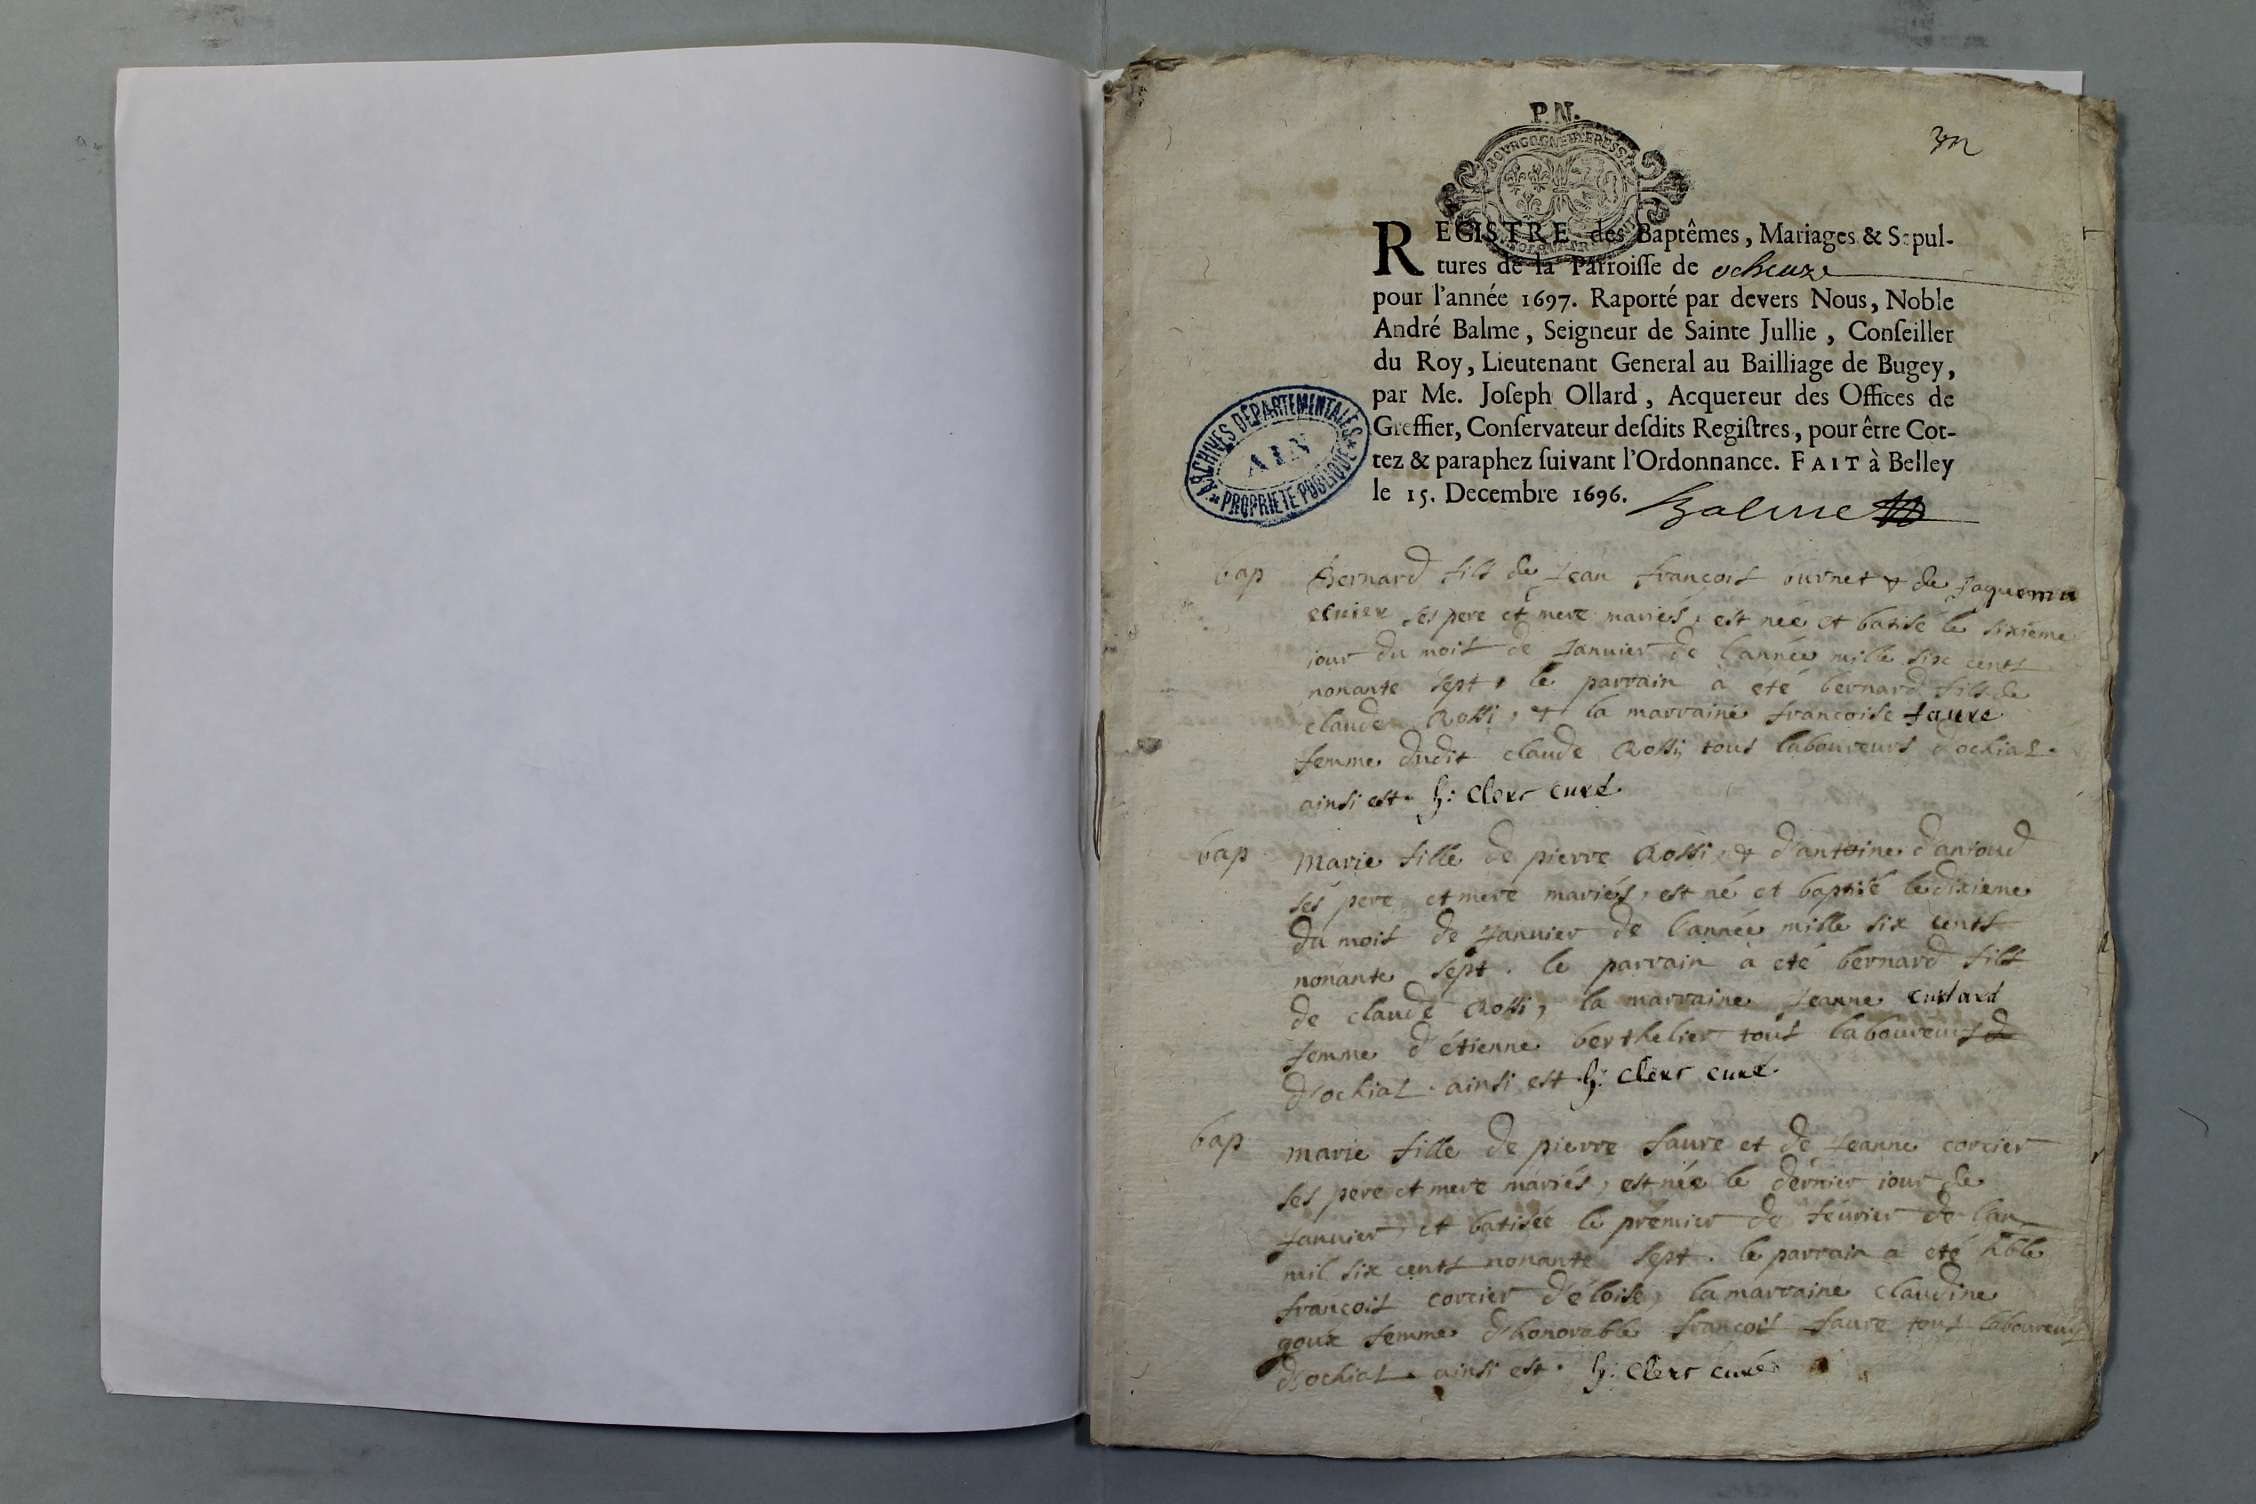 P.N.
BOURGOGNE BRESSE
REGISTRE des Baptêmes, Mariages & Sepul-
tures de la Parroisse de ocheaze
pour l'année 1697. Raporté par devers Nous, Noble
André Balme, Seigneur de Sainte Jullie, Conseiller
du Roy, Lieutenant General au Bailliage de Bugey,
par Me. Joseph Ollard, Acquereur des Offices de
Greffier, Conservateur desdits Registres, pour être Cot-
tez & paraphez suivant l'Ordonnance. FAIT à Belley
le 15. Decembre 1696. Balme
ARCHIVES DÉPARTEMENTALES
AIN
* PROPRIÉTÉ PUBLIQUE *
bap Bernard fils de Jean françois burnet & de Jaquema
ses pere et mere mariés, est née et batisé le sixieme
iour du mois de Januier de l'année mille six cents
nonante sept, le parrain a eté bernard fils de
claude Rossi, & la marraine françoise faure
femme dudit claude Rossi, tous laboureurs d'ochiaz.
ainsi est. h: Clerc curé
bap Marie fille de pierre Rossi, & d'antoine d'anioud
sés pere et mere mariés, est né et baptisé le dixieme
du mois de Januier de l'année mille six cents
nonante sept. le parrain a eté bernard fils
de claude Rossi, la marraine Jeanne
femme d'étienne berthelier tous laboureurs
d'ochiaz. ainsi est h: Clerc curé.
bap marie fille de pierre faure et de Jeanne corcier
ses pere et mere mariés, est née le dérnier iour de
Januier, et batisée le prémier de féurier de l'an
mil six cents nonante sept. le parrain a eté hble
françois corcier d'éloise, la marraine claudine
goux femme d'honorable françois faure tous laboureurs
d'ochiaz. ainsi est. h: Clerc curé